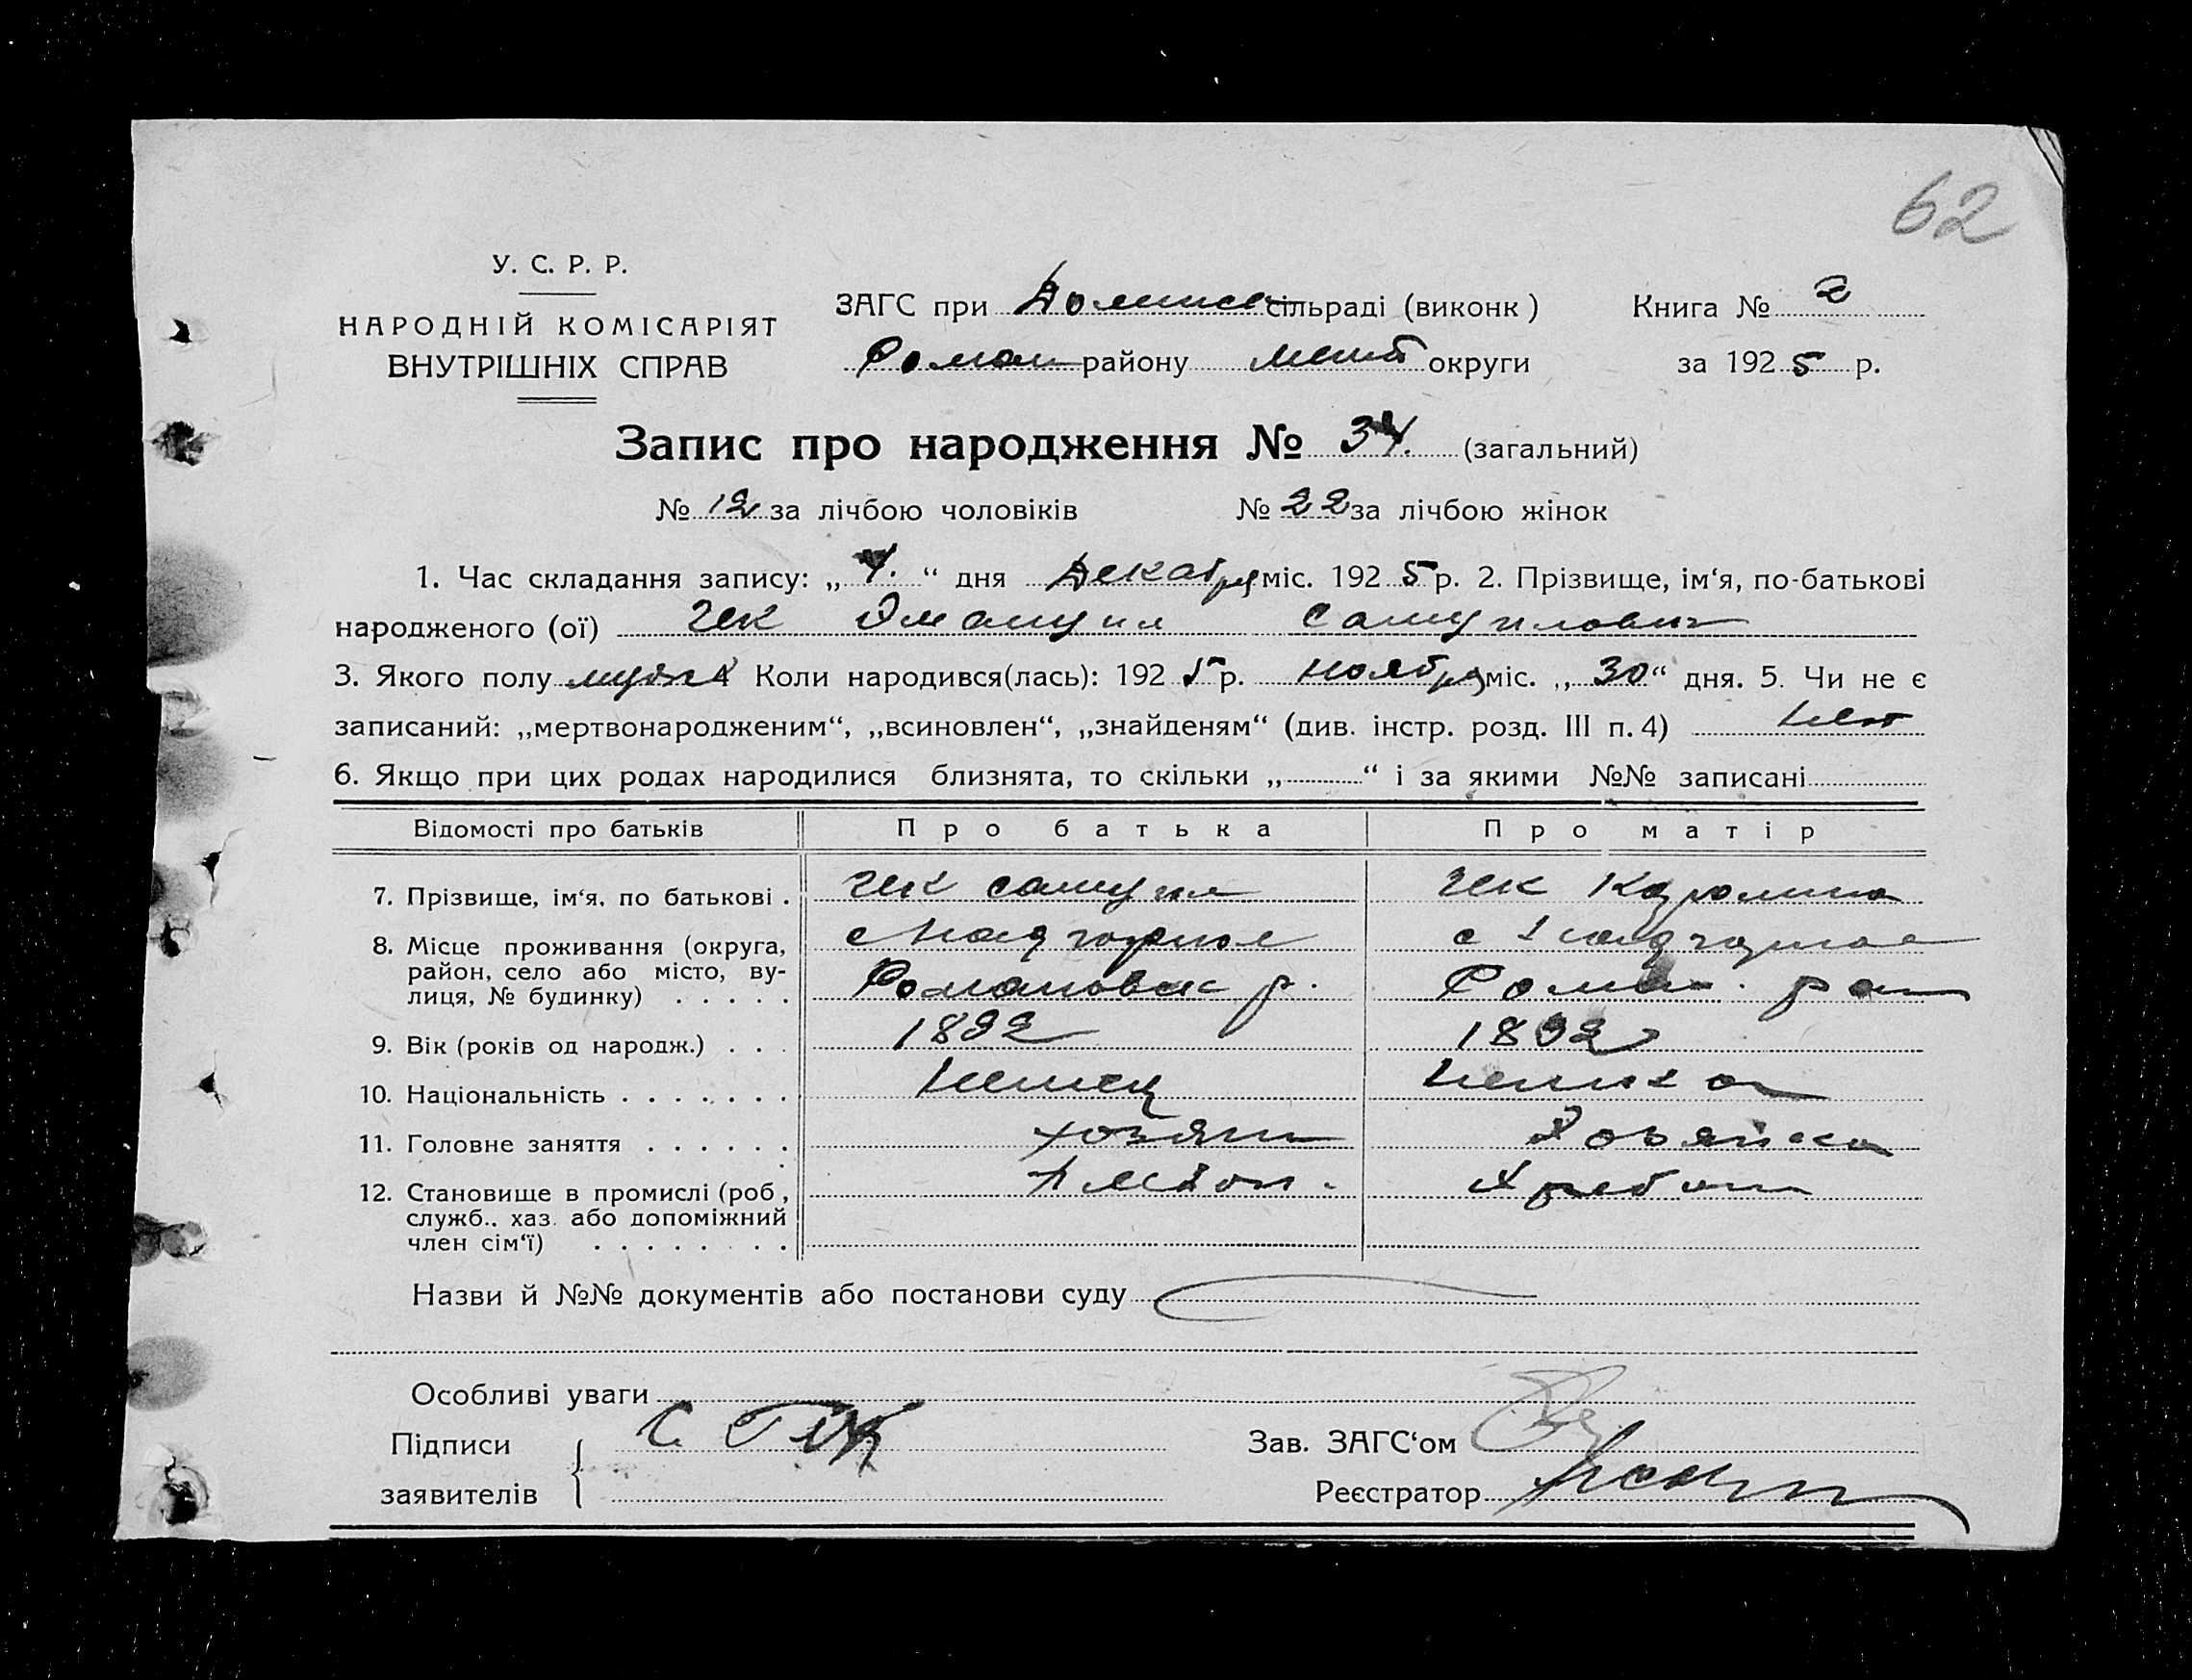 62
У. С. Р. Р.
НАРОДНІЙ КОМІСАРІЯТ
ВНУТРІШНІХ СПРАВ
ЗАГС при сільраді (виконк )
Роман району Мелит округи
Книга № 2
за 1925 р.
Запис про народження № 34. (загальний)
№ 12 за лічбою чоловіків № 22 за лічбою жінок
1. Час складання запису: „ 4. “ дня Декабря міс. 1925 р. 2. Прізвище, ім‘я, по-батькові
народженого (ої) Гек Эмануил Самуилович
3. Якого полу мужск 4 Коли народився(лась): 1925 р. ноября міс. „ 30 “ дня. 5. Чи не є
записаний: „мертвонародженим“, „всиновлен“, „знайденям“ (див. інстр. розд. III п. 4) Нет
6. Якщо при цих родах народилися близнята, то скільки „ “ і за якими №№ записані
Відомості про батьків Про батька Про матір
7. Прізвище, ім‘я, по батькові . Гек Самуил Гек Каролина
8. Місце проживання (округа, с Надгорное с Надгорное
район, село або місто, ву- Романовск р. Роман. рай
лиця, № будинку) . . . . .
9. Вік (років од народж.) . . . 1892 1892
10. Національність . . . . . . . Немец Немка
11. Головне заняття . . . . . . хозяин Хозяйка
12. Становище в промислі (роб ,
служб.. хаз. або допоміжний
член сім‘ї) . . . . . . . .
Назви й №№ документів або постанови суду
Особливі уваги
Підписи С. Гек Зав. ЗАГС‘ом
заявителів Реєстратор